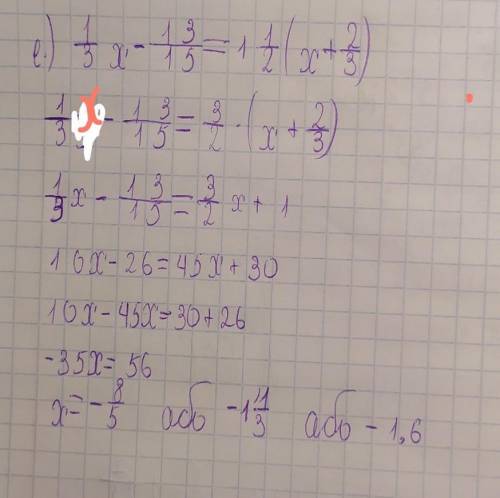 е.) 1/3 x - 13/15 = 1 1/2 (x + 2/3)
1/3 x - 13/15 = 3/2 · (x + 2/3)
1/3 x - 13/15 = 3/2 x + 1
10x - 26 = 45x + 30
10x - 45x = 30 + 26
-35x = 56
x = - 8/5 або -1 4/3 або - 1,6